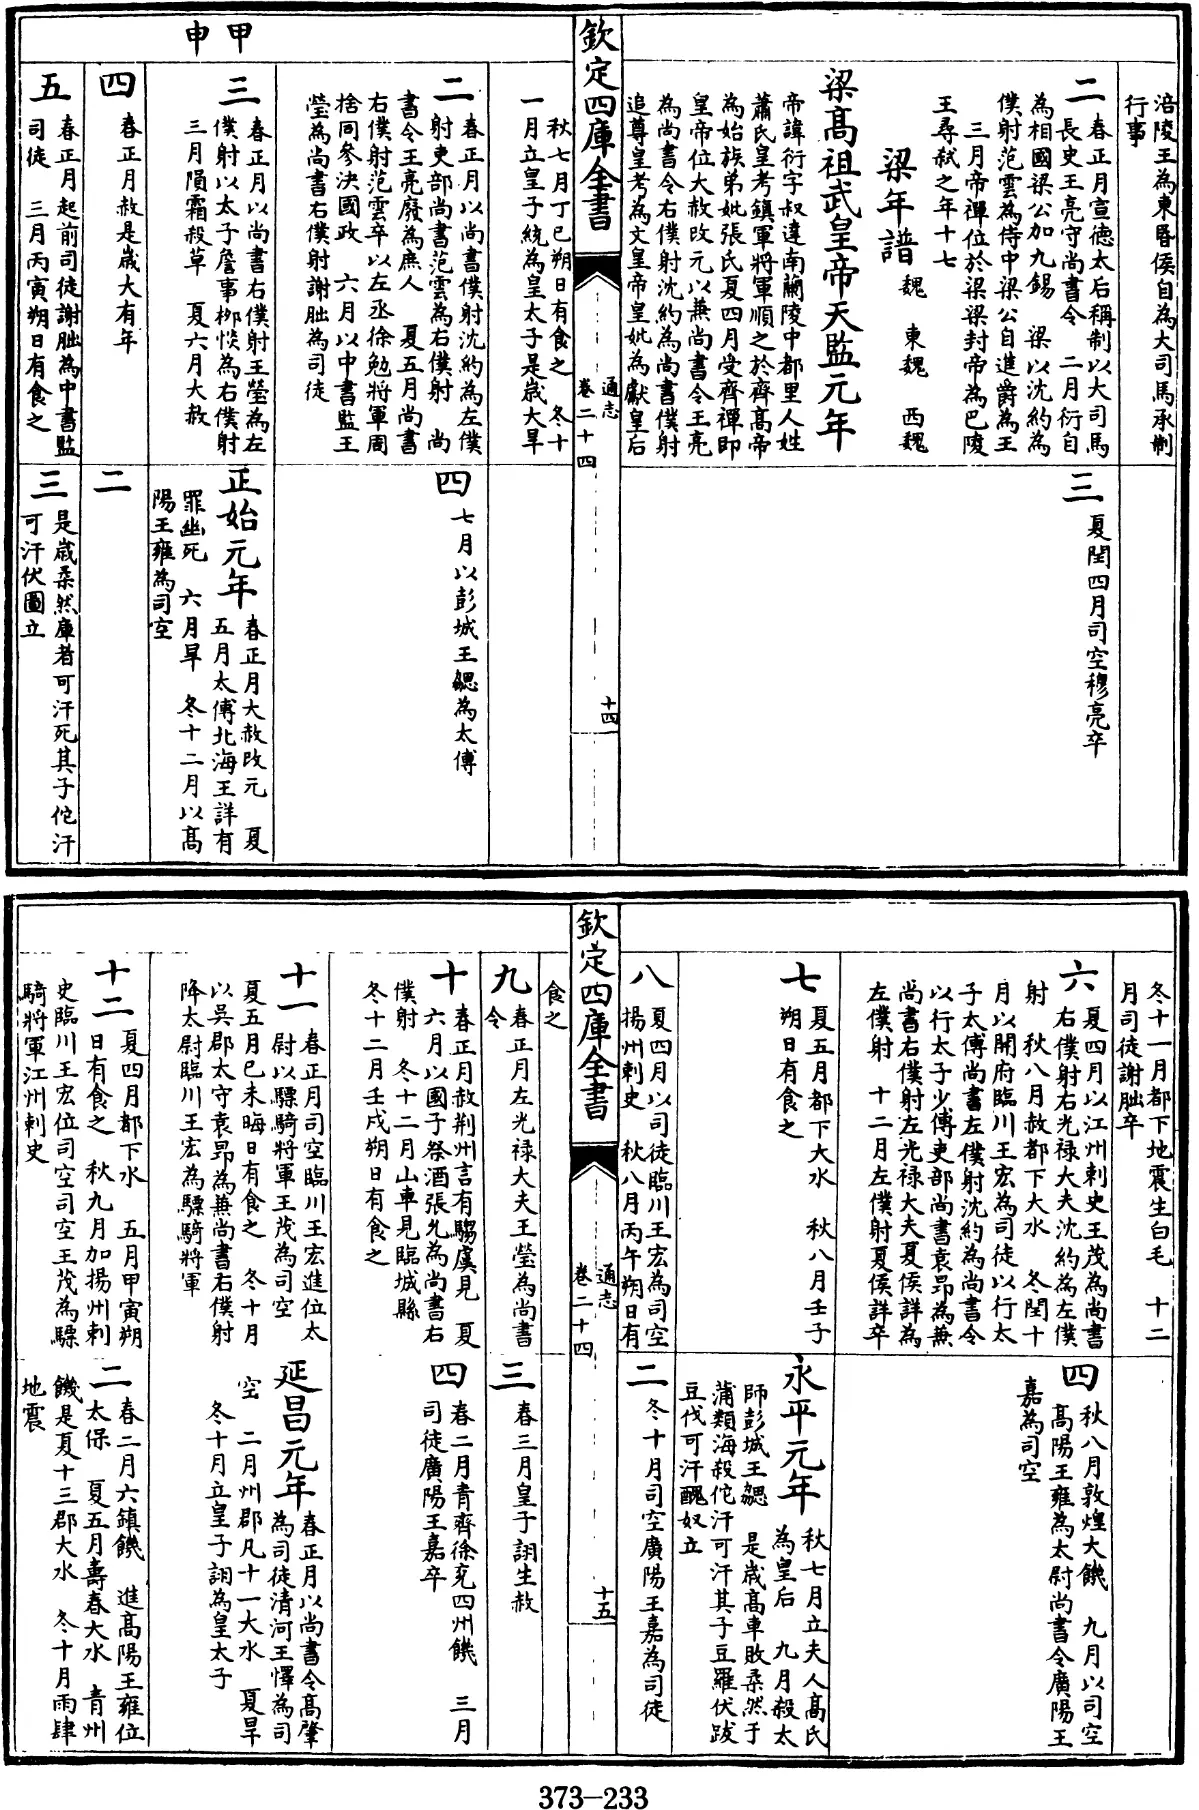 涪陵王為東昏侯自為大司馬承制
行事
二
春正月宣德太后稱制以大司馬
長史王亮守尚書令　二月衍自
為相國梁公加九錫　梁以沈約為
僕射范雲為侍中梁公自進爵為王
三月帝禪位於梁梁封帝為巴陵
王尋弒之年十七
梁年譜　魏　東魏　西魏
梁高祖武皇帝天監元年
帝諱衍字叔達南蘭陵中都里人姓
蕭氏皇考鎮軍將軍順之於齊高帝
為始族弟妣張氏夏四月受齊禪即
皇帝位大赦改元以兼尚書令王亮
為尚書令右僕射沈約為尚書僕射
追尊皇考為文皇帝皇妣為獻皇后
三
夏閏四月司空穆亮卒
欽定四庫全書
通志
卷二十四
十四
秋七月丁巳朔日有食之　冬十
一月立皇子統為皇太子是歲大旱
二
春正月以尚書僕射沈約為左僕
射吏部尚書范雲為右僕射　尚
書令王亮廢為庶人　夏五月尚書
右僕射范雲卒以左丞徐勉將軍周
捨同參決國政　六月以中書監王
瑩為尚書右僕射謝朏為司徒
四
七月以彭城王勰為太傅
甲申
三
春正月以尚書右僕射王瑩為左
僕射以太子詹事栁惔為右僕射
三月隕霜殺草　夏六月大赦
正始元年
春正月大赦改元　夏
五月太傅北海王詳有
罪幽死　六月旱　冬十二月以高
陽王雍為司空
四
春正月赦是歲大有年
二
五
春正月起前司徒謝朏為中書監
司徒　三月丙寅朔日有食之
三
是歲柔然庫者可汗死其子佗汗
可汗伏圖立
冬十一月都下地震生白毛　十二
月司徒謝朏卒
六
夏四月以江州刺史王茂為尚書
右僕射右光禄大夫沈約為左僕
射　秋八月赦都下大水　冬閏十
月以開府臨川王宏為司徒以行太
子太傅尚書左僕射沈約為尚書令
以行太子少傅吏部尚書袁昂為兼
尚書右僕射左光禄大夫夏侯詳為
左僕射　十二月左僕射夏侯詳卒
四
秋八月敦煌大饑　九月以司空
高陽王雍為太尉尚書令廣陽王
嘉為司空
七
夏五月都下大水　秋八月壬子
朔日有食之
永平元年
秋七月立夫人高氏
為皇后　九月殺太
師彭城王勰　是歲高車敗柔然于
蒲類海殺佗汗可汗其子豆羅伏跋
豆伐可汗醜奴立
八
夏四月以司徒臨川王宏為司空
揚州刺史　秋八月丙午朔日有
二
冬十月司空廣陽王嘉為司徒
欽定四庫全書
通志
卷二十四
十五
食之
九
春正月左光禄大夫王瑩為尚書
令
三
春三月皇子詡生赦
十
春正月赦荆州言有騶虞見　夏
六月以國子祭酒張充為尚書右
僕射　冬十二月山車見臨城縣
冬十二月壬戌朔日有食之
四
春二月青齊徐兖四州饑　三月
司徒廣陽王嘉卒
十一
春正月司空臨川王宏進位太
尉以驃騎將軍王茂為司空
夏五月己未晦日有食之　冬十月
以吳郡太守袁昂為兼尚書右僕射
降太尉臨川王宏為驃騎將軍
延昌元年
春正月以尚書令高肇
為司徒清河王懌為司
空　二月州郡凡十一大水　夏旱
冬十月立皇子詡為皇太子
十二
夏四月都下水　五月甲寅朔
日有食之　秋九月加揚州刺
史臨川王宏位司空司空王茂為驃
騎將軍江州刺史
二
春二月六鎮饑　進高陽王雍位
太保　夏五月壽春大水　青州
饑是夏十三郡大水　冬十月雨肆
地震
373-233